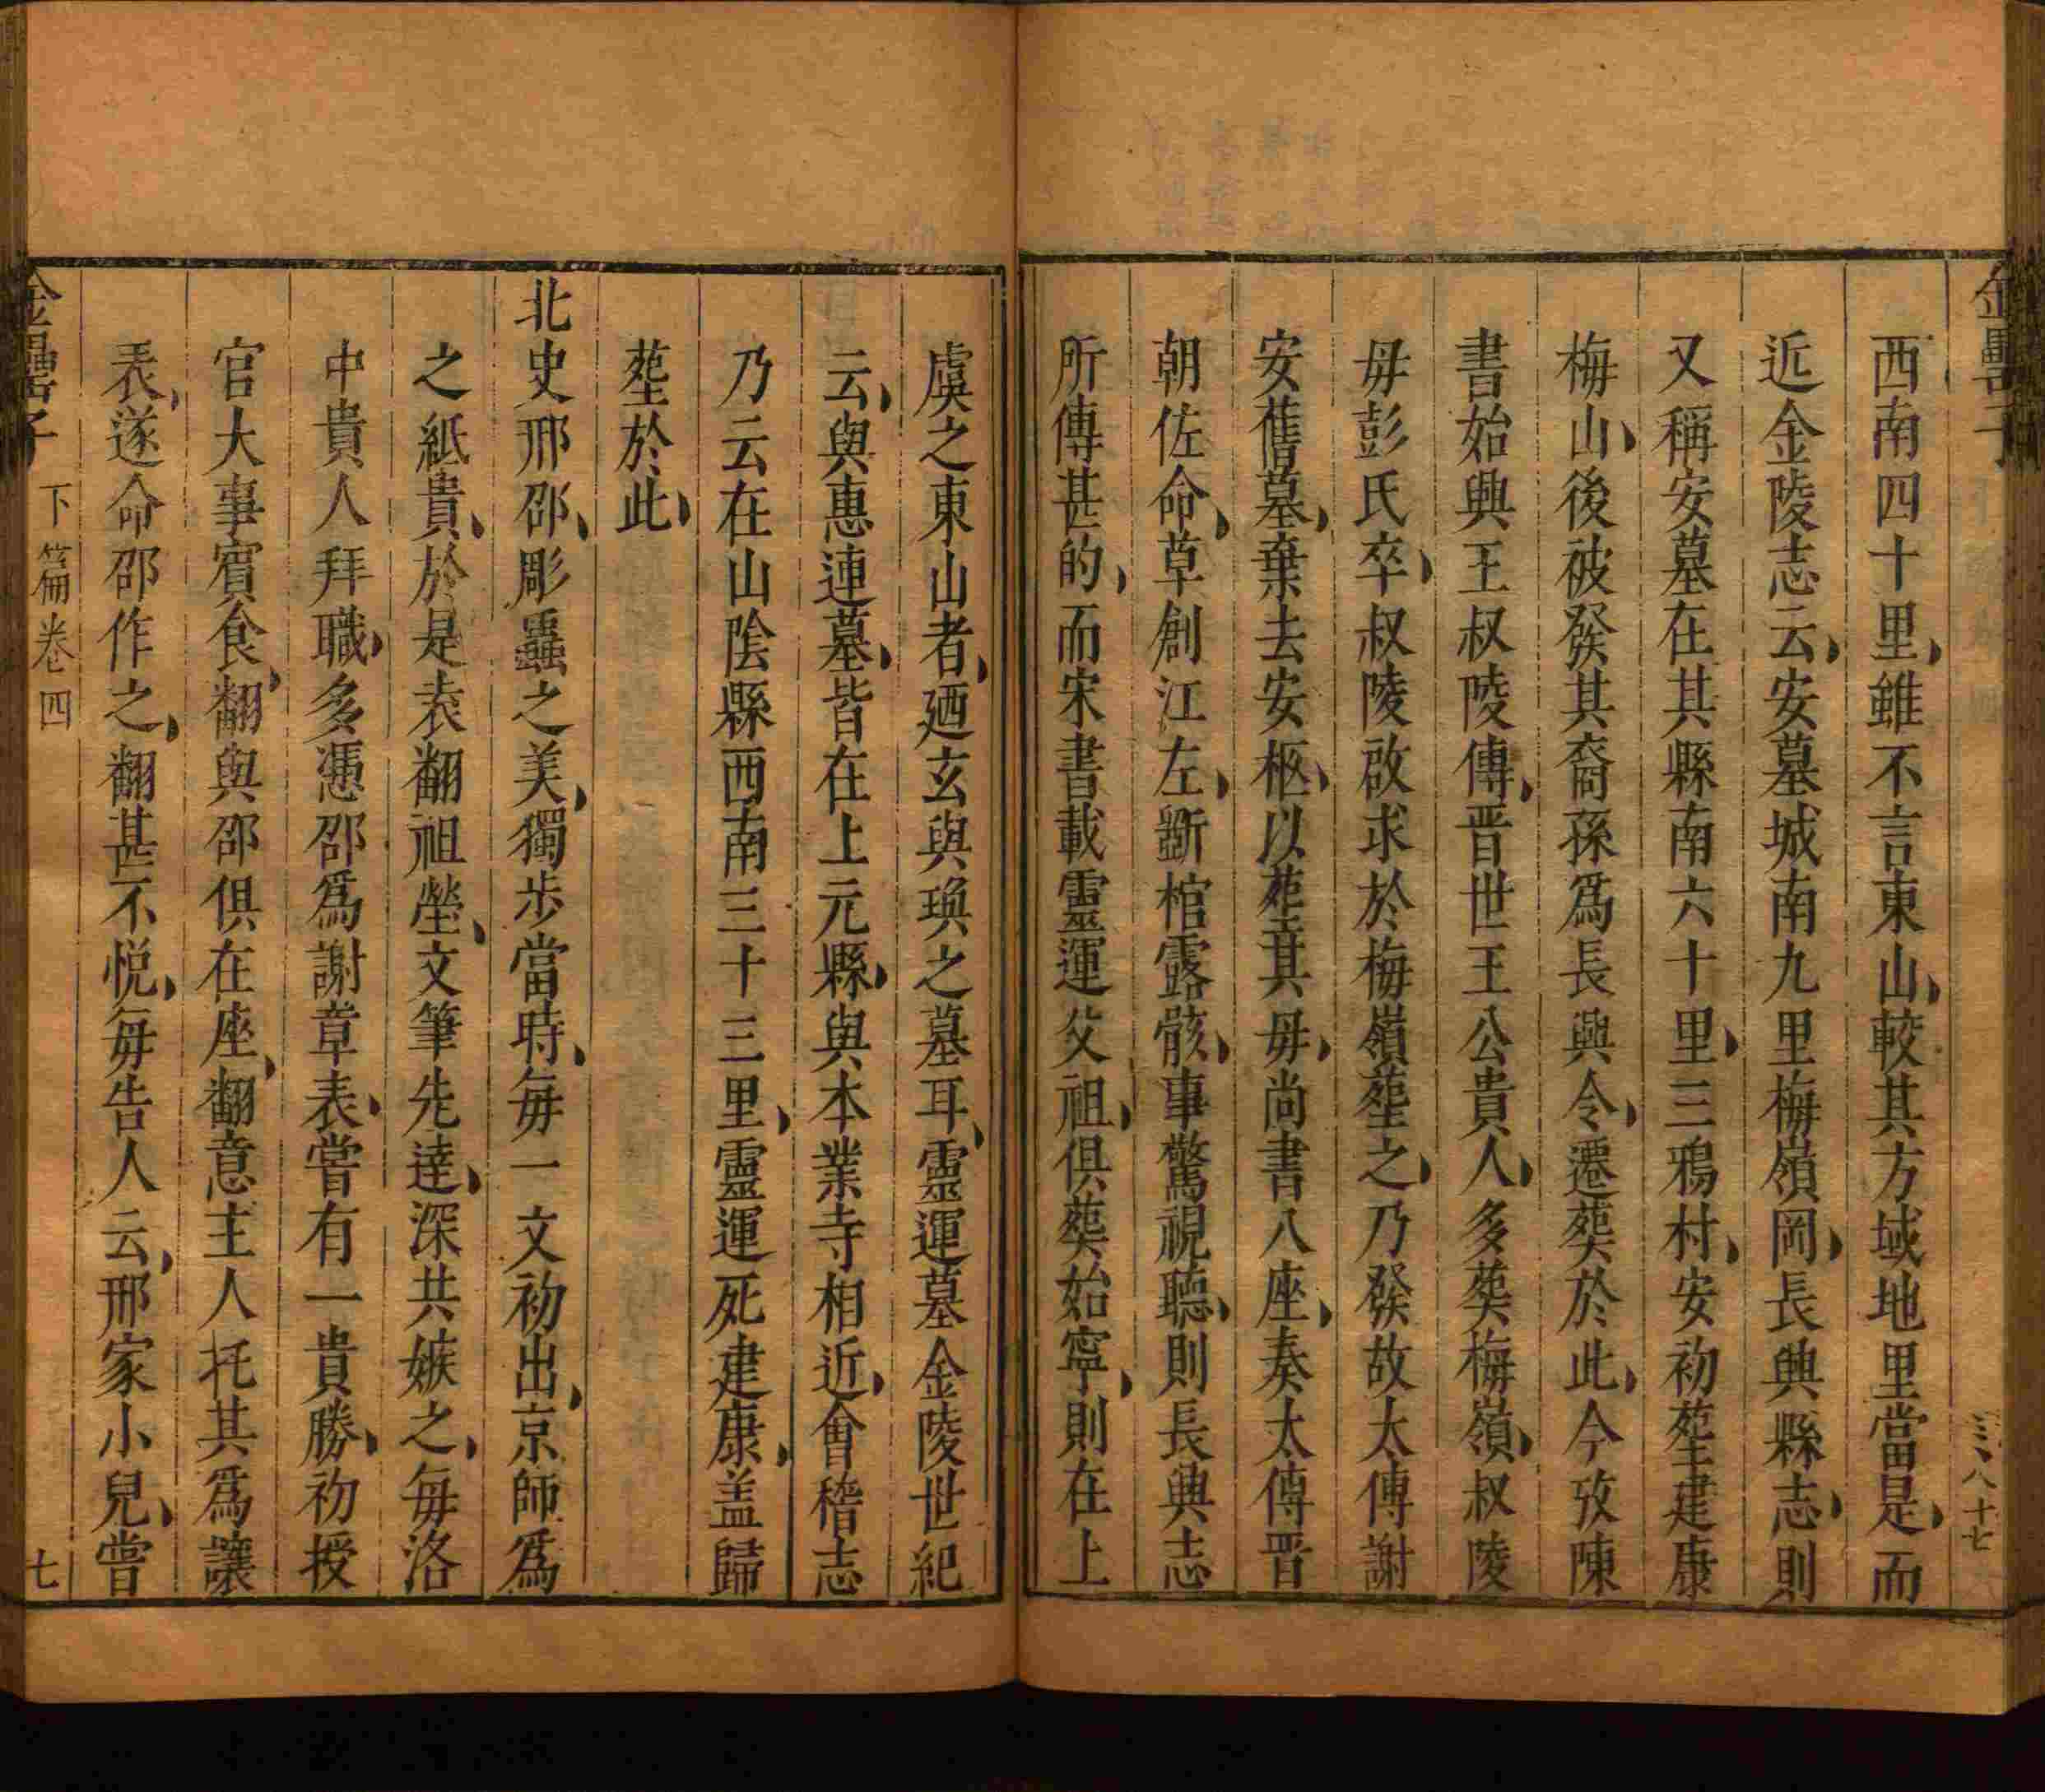 金罍子
八十七
西南四十里雖不言東山較其方域地里當是而
近金陵志云安墓城南九里梅嶺岡長興縣志則
又稱安墓在其縣南六十里三鴉村安初塟建康
梅山後被發其裔孫爲長興令遷葬於此今攷陳
書始興王叔陵傳晋世王公貴人多葬梅嶺叔陵
母彭氏卒叔陵啟求於梅嶺塟之乃發故太傅謝
安舊墓棄去安柩以塟其母尚書八座奏太傅晋
朝佐命草創江左斵棺露骸事驚視聽則長興志
所傳甚的而宋書載靈運父祖俱葬始寧則在上
虞之東山者廼玄與瑍之墓耳靈運墓金陵世紀
云與惠連墓皆在上元縣與本業寺相近會稽志
乃云在山陰縣西南三十三里靈運死建康盖歸
塟於此
北史邢邵彫蟲之美獨歩當時每一文初出京師爲
之紙貴於是袁翻祖瑩文筆先達深共嫉之每洛
中貴人拜職多慿邵爲謝章表嘗有一貴勝初授
官大事賓食翻與邵俱在座翻意主人托其爲讓
表遂命邵作之翻甚不悦每告人云邢家小兒嘗
金罍子
下篇卷四
七